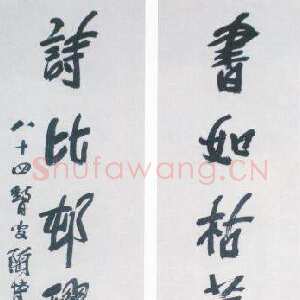 書如枯
詩比邨
八十四瞽叟
Shufawang.CN